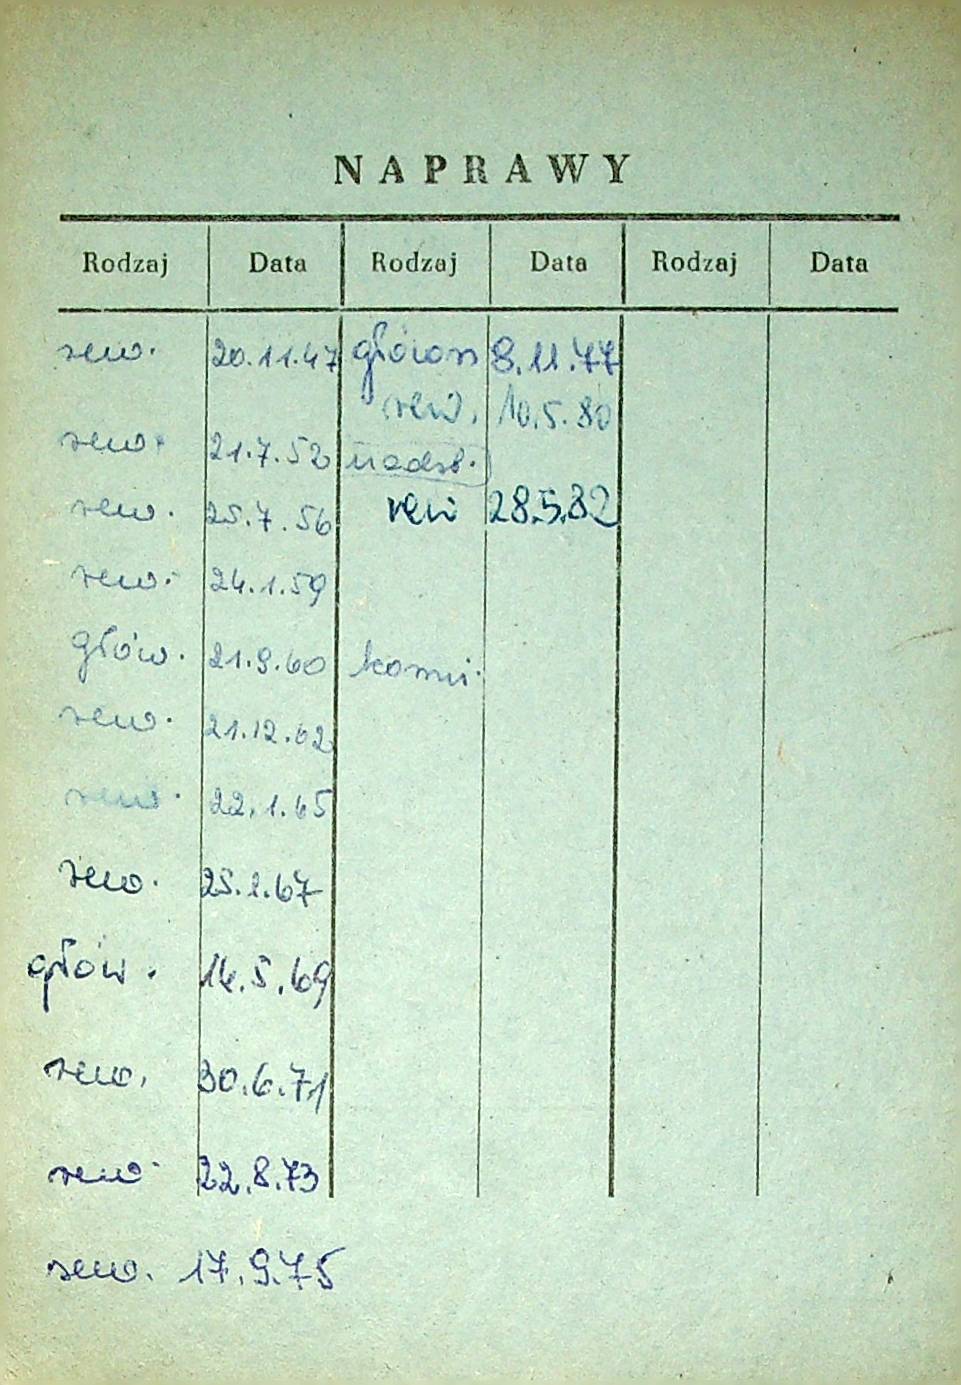 NAPRAWY
Rodzaj Data Rodzaj Data Rodzaj Data
rew. 20.11.47 główn 8.11.77
rew. 10.5.80
rew. 21.7.52 nadsł.
rew. 25.7.56 rew 28.5.82
rew. 24.1.59
głów. 21.9.60 komi.
rew. 21.12.62
rew. 22.1.65
rew. 25.1.67
głów. 14.5.69
rew. 30.6.71
rew. 22.8.73
rew. 17.9.75